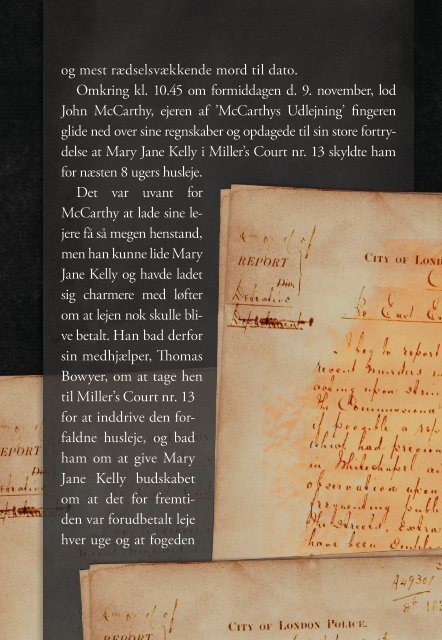 og mest rædselsvækkende mord til dato.
Omkring kl. 10.45 om formiddagen d. 9. november, lod
John McCarthy, ejeren af ’McCarthys Udlejning’ fingeren
glide ned over sine regnskaber og opdagede til sin store fortry-
delse at Mary Jane Kelly i Miller’s Court nr. 13 skyldte ham
for næsten 8 ugers husleje.
Det var uvant for
McCarthy at lade sine le-
jere få så megen henstand,
men han kunne lide Mary
Jane Kelly og havde ladet
sig charmere med løfter
om at lejen nok skulle bli-
ve betalt. Han bad derfor
sin medhjælper, Thomas
Bowyer, om at tage hen
til Miller’s Court nr. 13
for at inddrive den for-
faldne husleje, og bad
ham om at give Mary
Jane Kelly budskabet
om at det for fremti-
den var forudbetalt leje
hver uge og at fogeden
REPORT
CITY OF LOND
I beg to report
recent murders in
acting upon
the Commissioner
if possible a
had
in Whitechapel
observation upon
frequenting publ
the Streets, extra
have been
REPORT
A49301
CITY OF LONDON POLICE.
REPORT